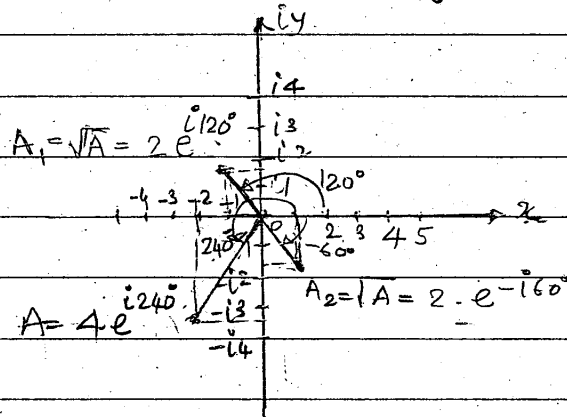 iy
i4
A₁ = √A = 2 e^{i120°}
i3
i2
i1
120°
-4 -3 -2 -1 0 2 3 4 5 x
240°
-60°
-i2
A₂ = √A = 2 · e^{-i60°}
A = 4 e^{i240°}
-i3
-i4